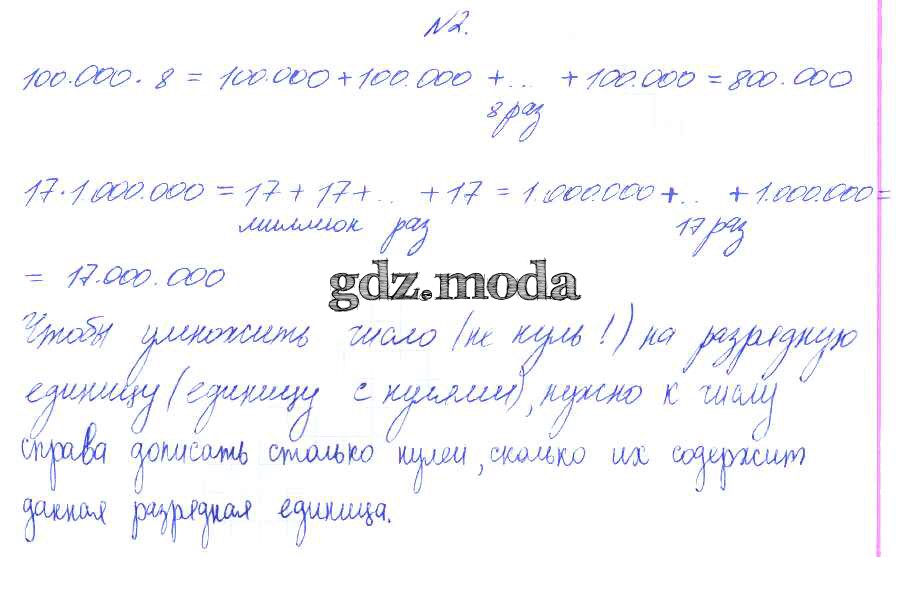 №2.
100.000 · 8 = 100.000 + 100.000 + ... + 100.000 = 800.000
8 раз
17 · 1.000.000 = 17 + 17 + ... + 17 = 1.000.000 + ... + 1.000.000 =
миллион раз 17 раз
= 17.000.000
gdz.moda
Чтобы умножить число (не нуль!) на разрядную
единицу (единицу с нулями), нужно к числу
справа дописать столько нулей, сколько их содержит
данная разрядная единица.